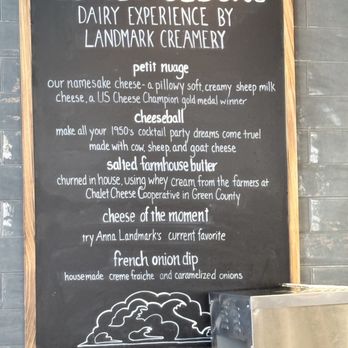 DAIRY EXPERIENCE BY
LANDMARK CREAMERY
petit nuage
our namesake cheese- a pillowy soft, creamy sheep milk
cheese, a US Cheese Champion gold medal winner
cheeseball
make all your 1950's cocktail party dreams come true!
made with cow, sheep, and goat cheese
salted farmhouse butter
churned in house, using whey cream from the farmers at
Chalet Cheese Cooperative in Green County
cheese of the moment
try Anna Landmark's current favorite
french onion dip
housemade creme fraiche and caramelized onions